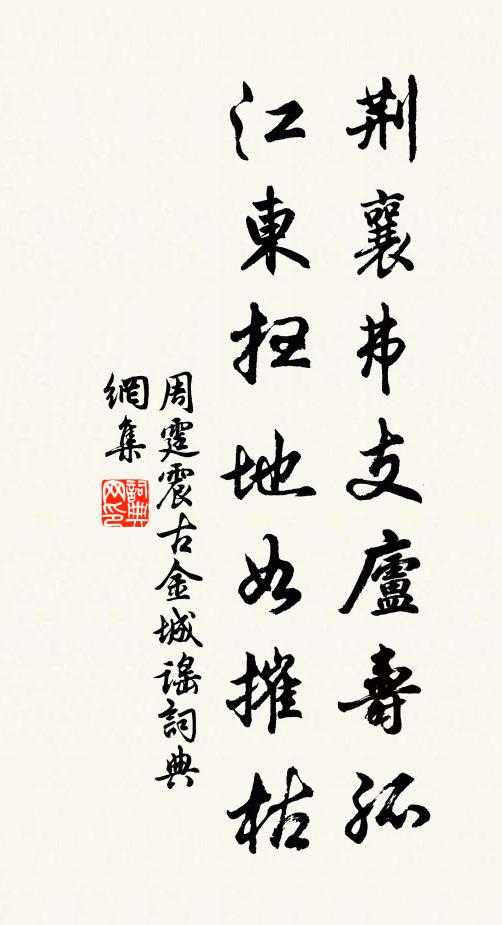 荆襄弗支廬壽孤
江東掃地如摧枯
周霆震古金城謠詞典
網集
詞典網印